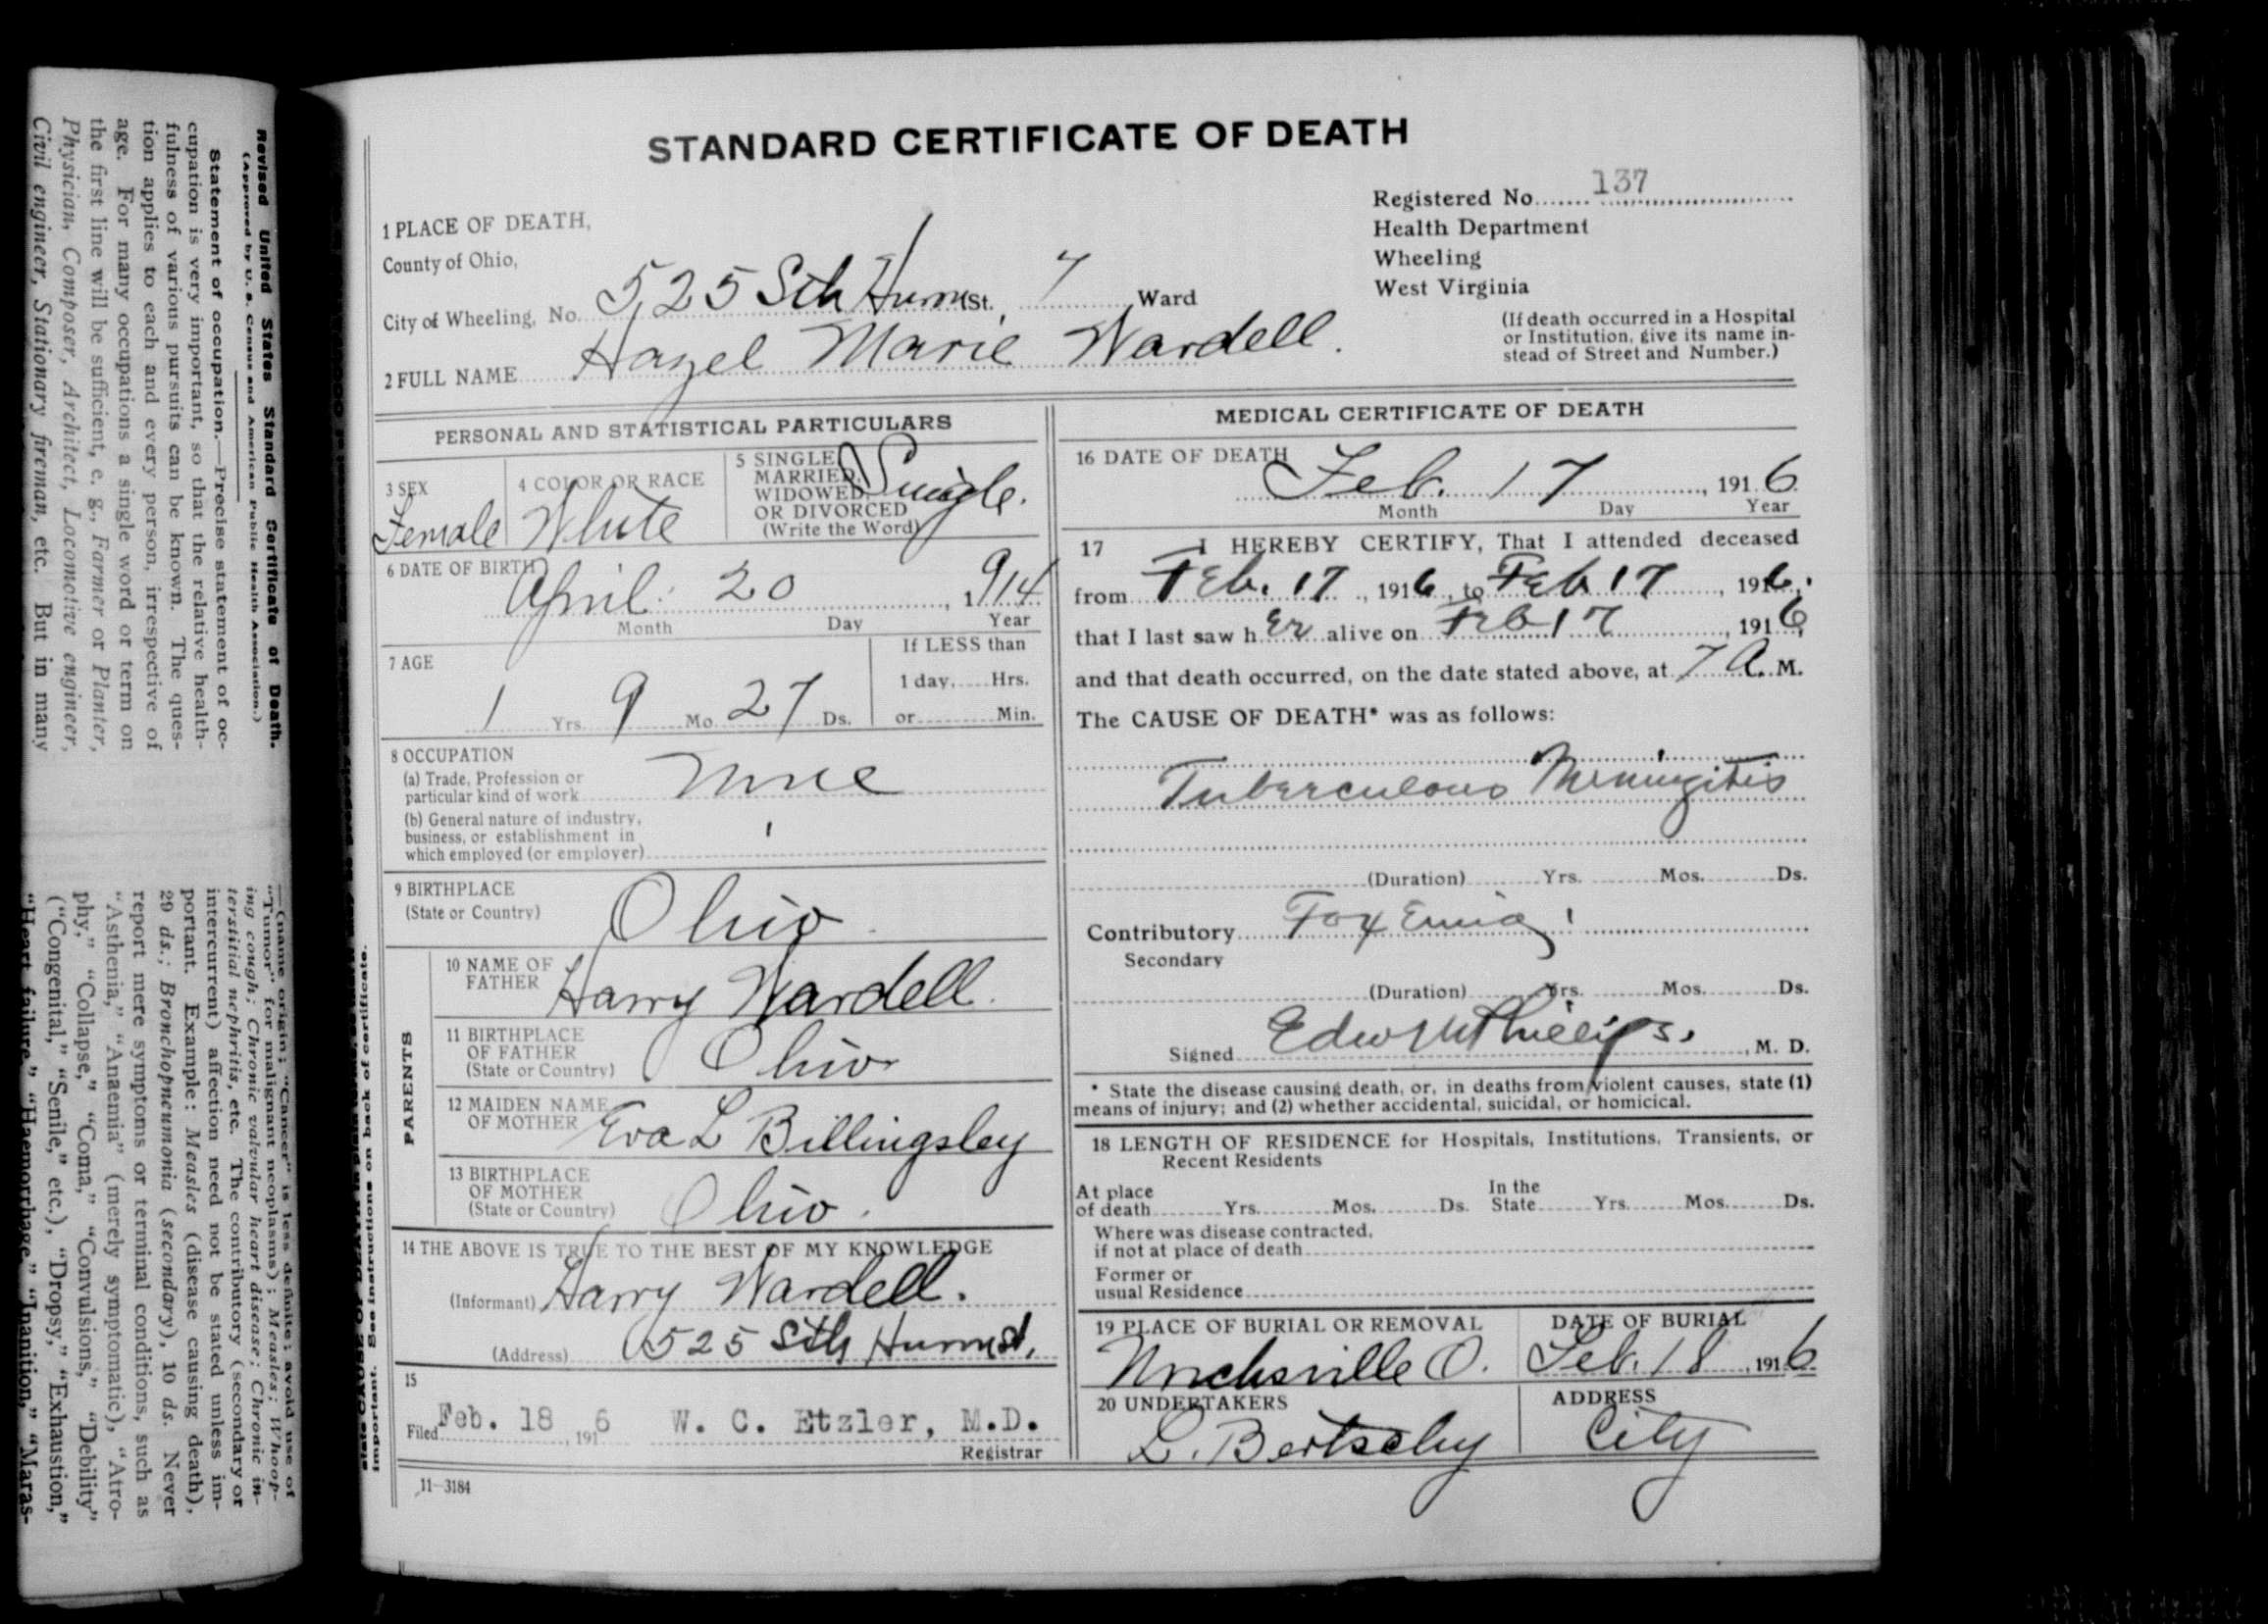 STANDARD CERTIFICATE OF DEATH
Registered No. 137
Health Department
Wheeling
West Virginia
(If death occurred in a Hospital
or Institution, give its name in-
stead of Street and Number.)
1 PLACE OF DEATH,
County of Ohio,
City of Wheeling, No. 525 Sth Huron St., 7 Ward
2 FULL NAME Hazel Marie Wardell.
PERSONAL AND STATISTICAL PARTICULARS
3 SEX
Female
4 COLOR OR RACE
White
5 SINGLE
MARRIED,
WIDOWED,
OR DIVORCED
(Write the Word)
Single.
6 DATE OF BIRTH
April 20, 1914
Month Day Year
7 AGE
1 Yrs. 9 Mo. 27 Ds.
If LESS than
1 day, Hrs.
or Min.
8 OCCUPATION
(a) Trade, Profession or
particular kind of work None
(b) General nature of industry,
business, or establishment in
which employed (or employer)
9 BIRTHPLACE
(State or Country)
Ohio
PARENTS
10 NAME OF
FATHER
Harry Wardell.
11 BIRTHPLACE
OF FATHER
(State or Country)
Ohio
12 MAIDEN NAME
OF MOTHER
Eva L Billingsley
13 BIRTHPLACE
OF MOTHER
(State or Country)
Ohio.
14 THE ABOVE IS TRUE TO THE BEST OF MY KNOWLEDGE
(Informant) Harry Wardell.
(Address) 525 Sth Huron St,
15
Filed Feb. 18, 1916 W. C. Etzler, M.D.
Registrar
11-3184
MEDICAL CERTIFICATE OF DEATH
16 DATE OF DEATH
Feb. 17, 1916
Month Day Year
17 I HEREBY CERTIFY, That I attended deceased
from Feb. 17, 1916, to Feb 17, 1916,
that I last saw her alive on Feb 17, 1916,
and that death occurred, on the date stated above, at 7 A. M.
The CAUSE OF DEATH* was as follows:
Tuberculous Meningitis
(Duration) Yrs. Mos. Ds.
Contributory Toxemia
Secondary
(Duration) Yrs. Mos. Ds.
Signed Edw M Phillips., M. D.
* State the disease causing death, or, in deaths from violent causes, state (1)
means of injury; and (2) whether accidental, suicidal, or homicical.
18 LENGTH OF RESIDENCE for Hospitals, Institutions, Transients, or
Recent Residents
At place
of death Yrs. Mos. Ds.
In the
State Yrs. Mos. Ds.
Where was disease contracted,
if not at place of death
Former or
usual Residence
19 PLACE OF BURIAL OR REMOVAL
O.
DATE OF BURIAL
Feb. 18, 1916
20 UNDERTAKERS
L. Bertschy
ADDRESS
City
important. See instructions on back of certificate.
Revised United States Standard Certificate of Death.
(Approved by U. S. Census and American Public Health Association.)
Statement of occupation.—Precise statement of oc-
cupation is very important, so that the relative health-
fulness of various pursuits can be known. The ques-
tion applies to each and every person, irrespective of
age. For many occupations a single word or term on
the first line will be sufficient, e. g., Farmer or Planter,
Physician, Composer, Architect, Locomotive engineer,
Civil engineer, Stationary fireman, etc. But in many
—(name origin; "Cancer" is less definite; avoid use of
"Tumor" for malignant neoplasms); Measles; Whoop-
ing cough; Chronic valvular heart disease; Chronic in-
terstitial nephritis, etc. The contributory (secondary or
intercurrent) affection need not be stated unless im-
portant. Example: Measles (disease causing death),
29 ds.; Bronchopneumonia (secondary), 10 ds. Never
report mere symptoms or terminal conditions, such as
"Asthenia," "Anaemia" (merely symptomatic), "Atro-
phy," "Collapse," "Coma," "Convulsions," "Debility"
("Congenital," "Senile," etc.), "Dropsy," "Exhaustion,"
"Heart failure," "Haemorrhage," "Inanition," "Maras-